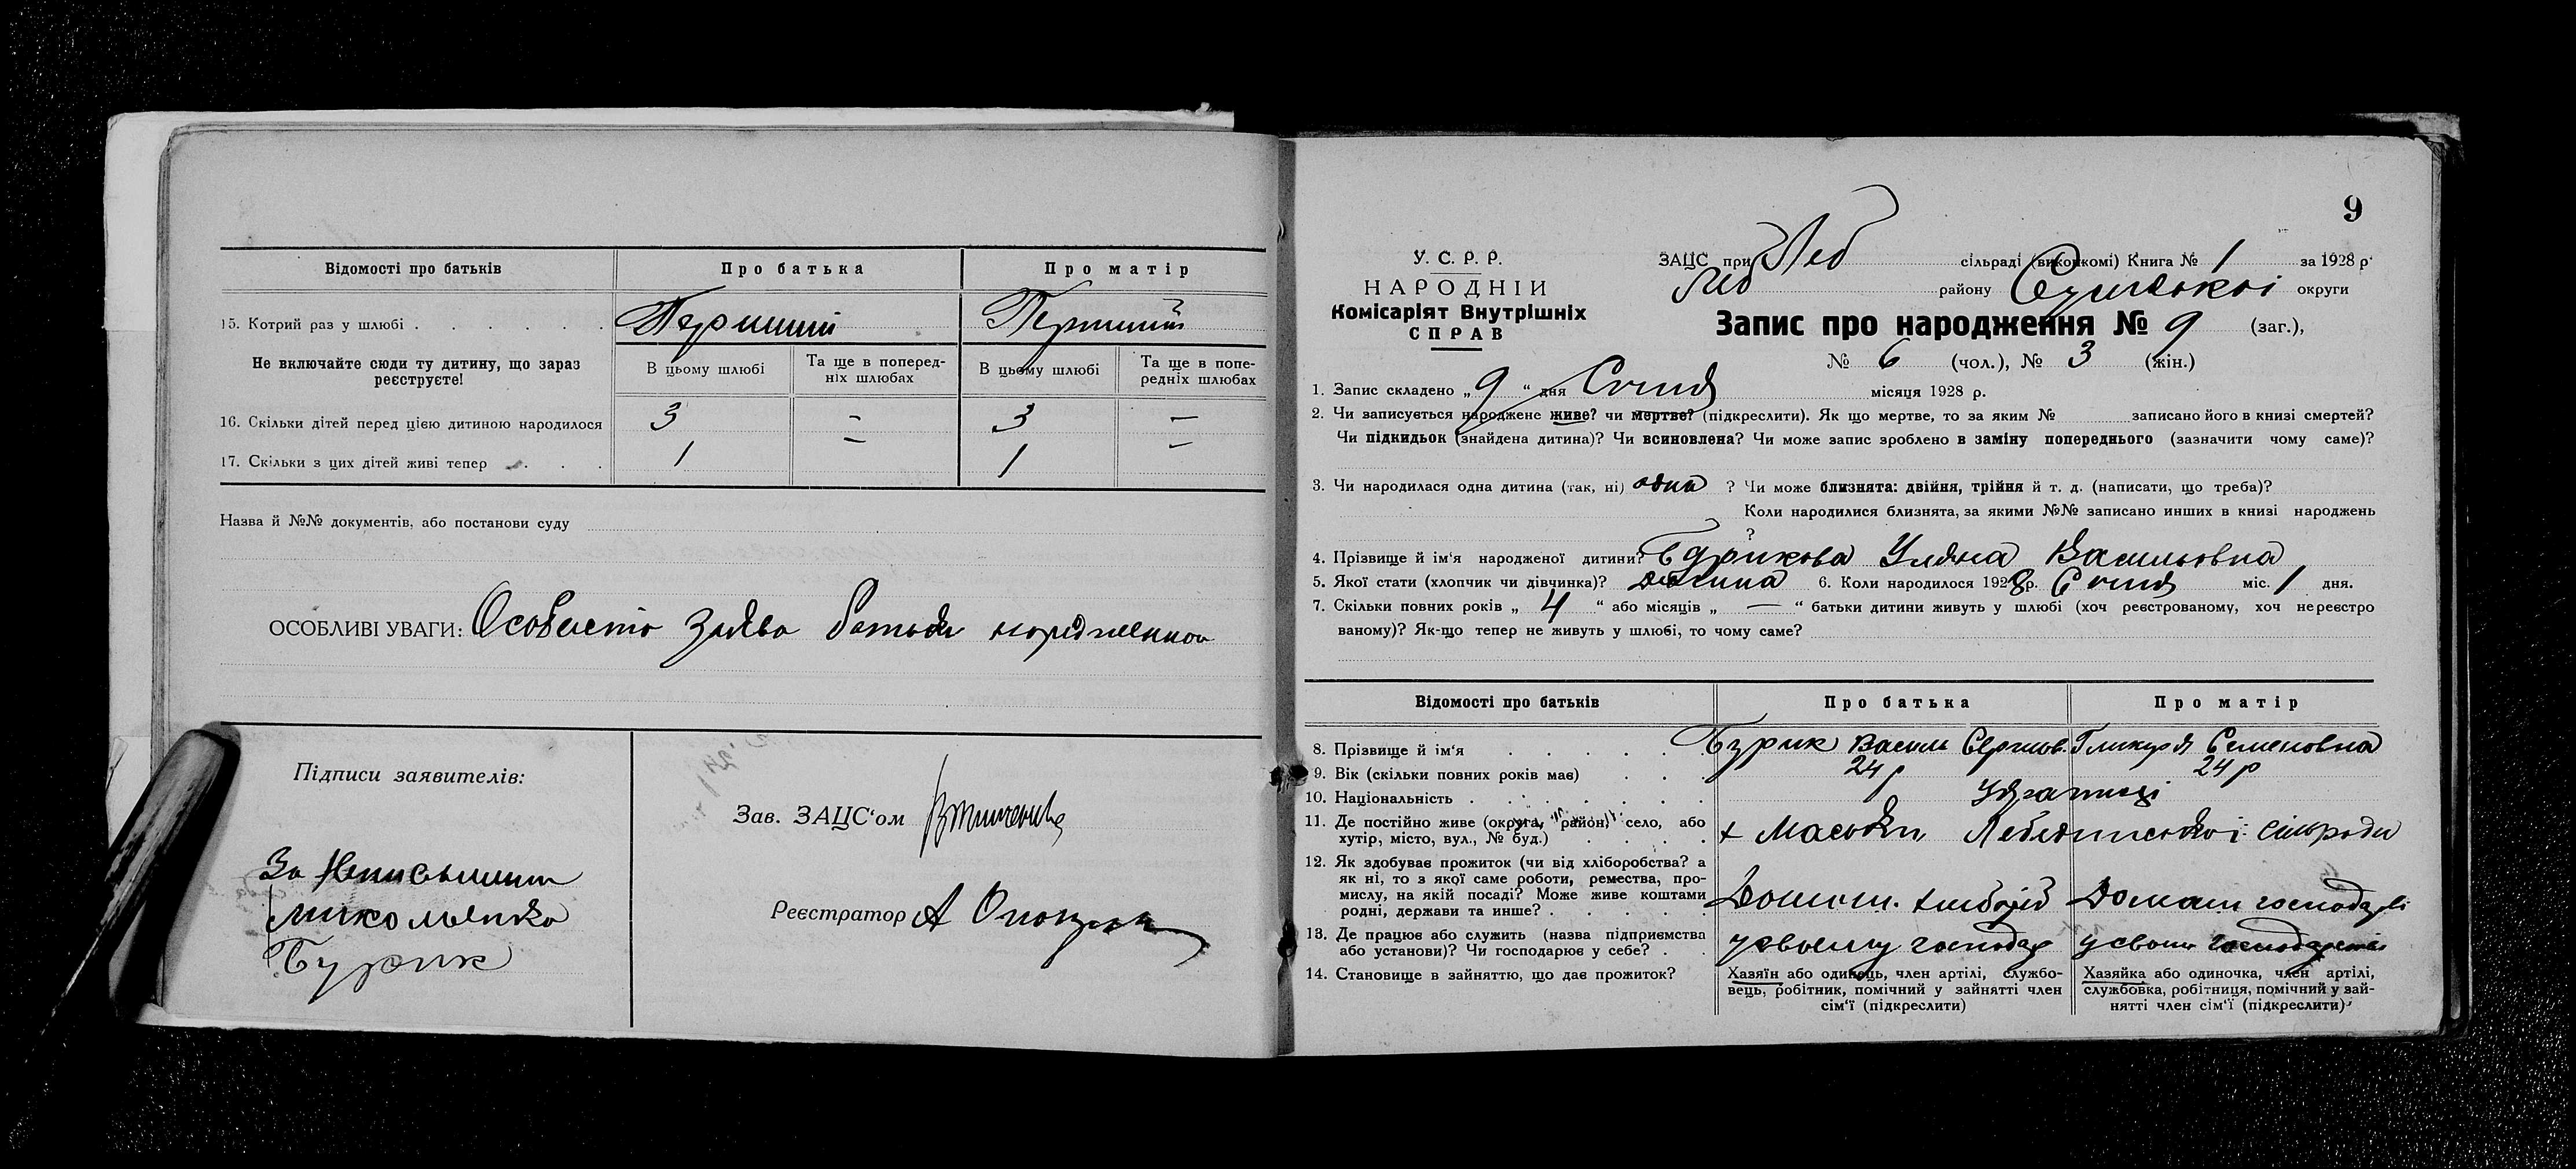 Відомості про батьків Про батька Про матір
15. Котрий раз у шлюбі Перший Перший
Не включайте сюди ту дитину, що зараз реєструєте!
В цьому шлюбі Та ще в попередніх шлюбах В цьому шлюбі Та ще в попередніх шлюбах
16. Скільки дітей перед цією дитиною народилося 3 – 3 –
17. Скільки з цих дітей живі тепер 1 – 1 –
Назва й №№ документів, або постанови суду
ОСОБЛИВІ УВАГИ: Особисто заява батька
Підписи заявителів:
За
Бурик
Зав. ЗАЦС‘ом
Реєстратор А
9
У. С. Р. Р.
НАРОДНІЙ
Комісаріят Внутрішніх
СПРАВ
ЗАЦС при Леб сільраді (виконкомі) Книга № 1 за 1928 р.
Леб району Сумської округи
Запис про народження № 9 (заг.),
№ 6 (чол.), № 3 (жін.)
1. Запис складено „ 9 “ дня Січня місяця 1928 р.
2. Чи записується народжене живе? чи мертве? (підкреслити). Як що мертве, то за яким № записано його в книзі смертей?
Чи підкидьок (знайдена дитина)? Чи всиновлена? Чи може запис зроблено в заміну попереднього (зазначити чому саме)?
3. Чи народилася одна дитина (так, ні) одна ? Чи може близнята: двійня, трійня й т. д. (написати, що треба)?
Коли народилися близнята, за якими №№ записано инших в книзі народжень
?
4. Прізвище й ім‘я народженої дитини? Бурикова Уляна Васильовна
5. Якої стати (хлопчик чи дівчинка)? 6. Коли народилося 1928 р. Січня міс. 1 дня.
7. Скільки повних років „ 4 “ або місяців „ — “ батьки дитини живуть у шлюбі (хоч реєстрованому, хоч нереєстро
ваному)? Як-що тепер не живуть у шлюбі, то чому саме?
Відомості про батьків Про батька Про матір
8. Прізвище й ім‘я Бурик Василь Гликерія Семеновна
9. Вік (скільки повних років має) 24 р 24 р
10. Національність Українці
11. Де постійно живе (округа, район, село, або
хутір, місто, вул., № буд.) х Маськи Лебединської Сільради
12. Як здобуває прожиток (чи від хліборобства? а
як ні, то з якої саме роботи, ремества, про-
мислу, на якій посаді? Може живе коштами
родні, держави та инше? Домаш господарі
13. Де працює або служить (назва підприємства
або установи)? Чи господарює у себе? у своєму господар у своїм господарстві
14. Становище в зайняттю, що дає прожиток?
Хазяїн або одинець, член артілі, службо-
вець, робітник, помічний у зайнятті член
сім‘ї (підкреслити)
Хазяйка або одиночка, член артілі,
службовка, робітниця, помічний у зай-
нятті член сім‘ї (підкреслити)